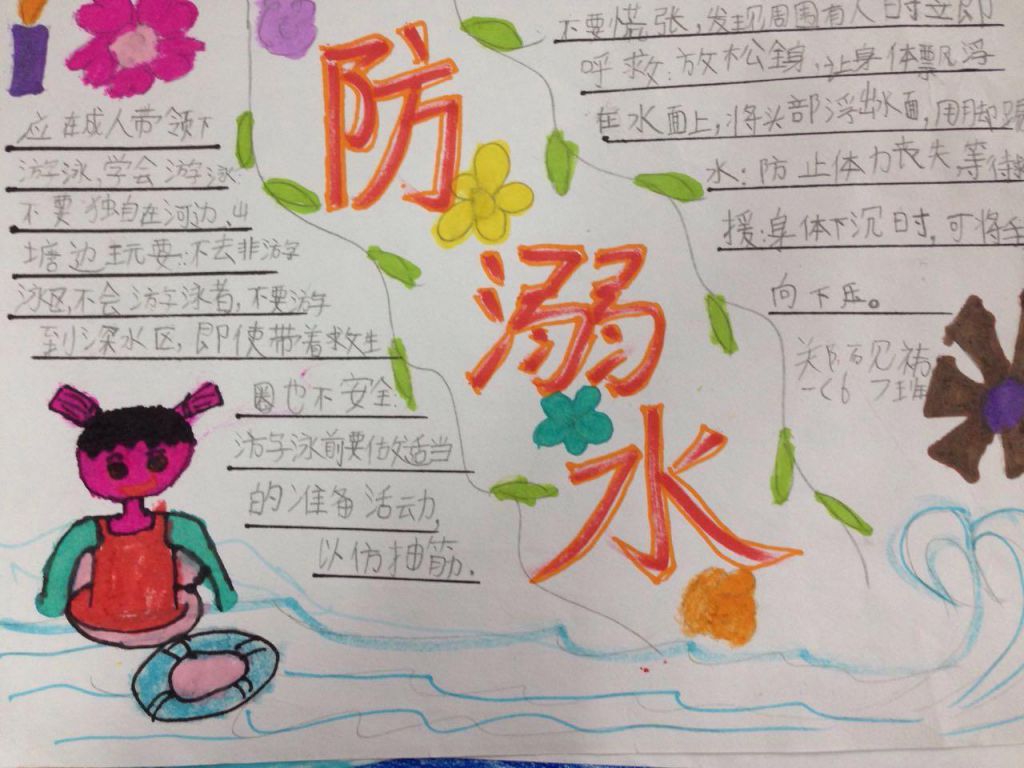 防溺水
应在成人带领下
游泳,学会游泳.
不要独自在河边、山
塘边玩耍.不去非游
泳区,不会游泳者,不要游
到深水区,即使带着救生
圈也不安全.
游泳前要做适当
的准备活动,
以仿抽筋.
不要慌张,发现周围有人时立即
呼救:放松全身,让身体飘浮
在水面上,将头部浮出水面,用脚踢
水:防止体力丧失,等待
援:身体下沉时,可将手
向下压。